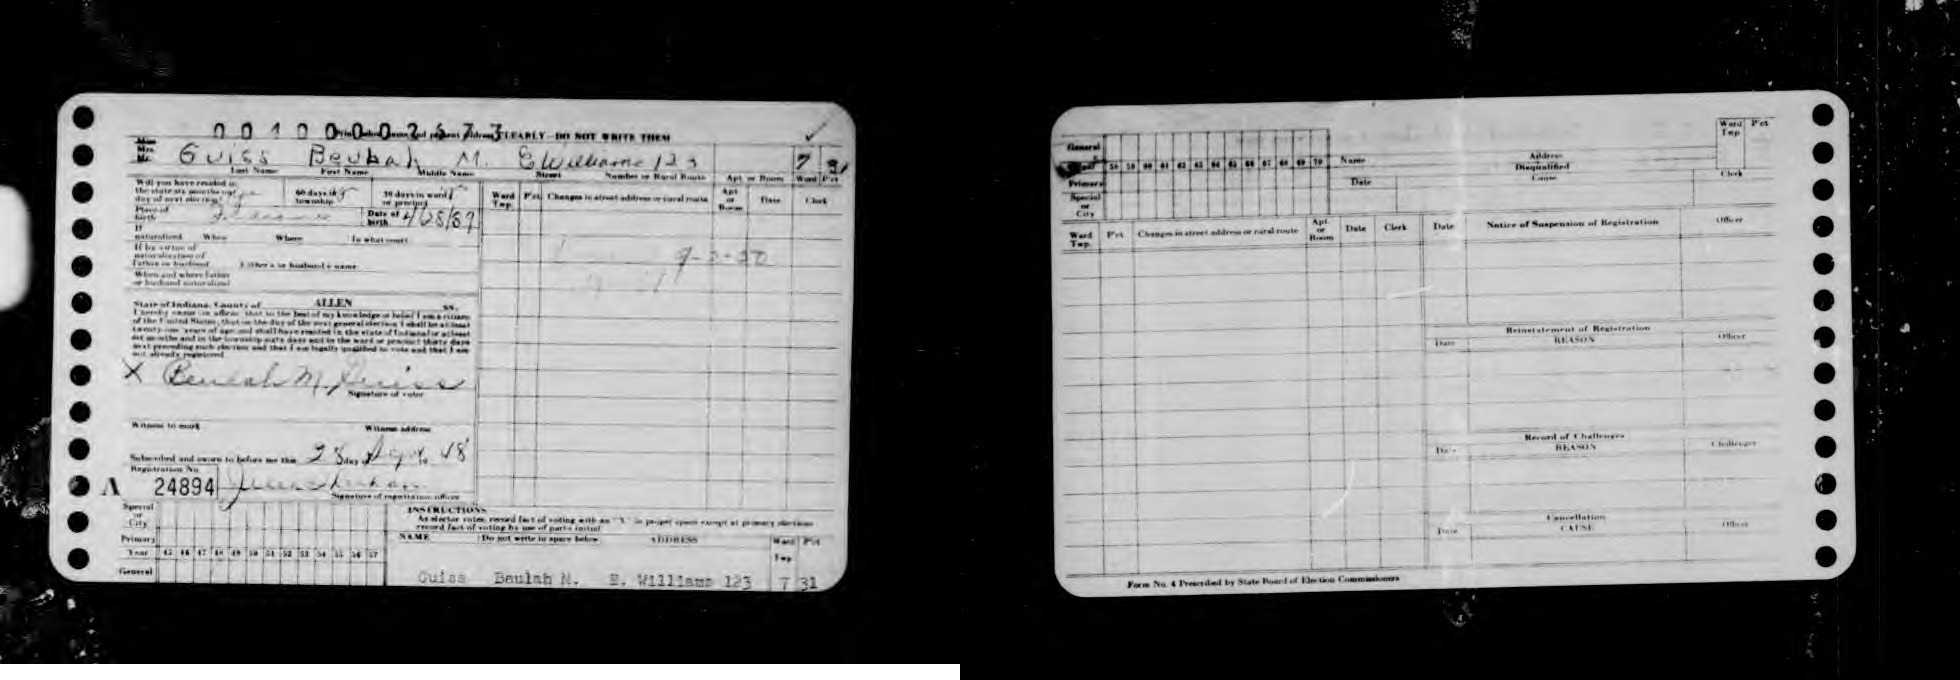 00100002573
Print name and present address CLEARLY—DO NOT WRITE THEM
Miss
Mrs.
Mr.
Guiss Beulah M. E Williams 123 7 31
Last Name First Name Middle Name Street Number or Rural Route Apt. or Room Ward P'ct
Will you have resided in
the state six months on
day of next election
60 days in
township
30 days in ward
or precinct
Place of
birth Indiana
Date of
birth 4/28/89
If
naturalized When Where In what court
If by virtue of
naturalization of
father or husband Father's or husband's name
When and where father
or husband naturalized
State of Indiana, County of ALLEN ss.
I hereby swear (or affirm) that to the best of my knowledge or belief I am a citizen
of the United States, that on the day of the next general election I shall be at least
twenty-one years of age and shall have resided in the state of Indiana for at least
six months and in the township sixty days and in the ward or precinct thirty days
next preceding such election and that I am legally qualified to vote and that I am
not already registered
X Beulah M. Guiss
Signature of voter
Witness to mark Witness address
Subscribed and sworn to before me this 28 day 19 48
Registration No.
A 24894
Signature of registration officer
Special
or
City
Primary
Year 45 46 47 48 49 50 51 52 53 54 55 56 57
General
Ward
Twp. P'ct. Changes in street address or rural route Apt
or
Room Date Clerk
INSTRUCTIONS
As elector votes, record fact of voting with an "X" in proper space except at primary elections
record fact of voting by use of party initial
NAME Do not write in space below ADDRESS Ward
Twp P'ct
Guiss Beulah M. E. Williams 123 7 31
General
58 59 60 61 62 63 64 65 66 67 68 69 70
Primary
Special
or
City
Name Address
Disqualified
Date Cause Clerk
Ward
Twp P'ct
Ward
Twp. P'ct Changes in street address or rural route Apt
or
Room Date Clerk
Date Notice of Suspension of Registration Officer
Reinstatement of Registration
Date REASON Officer
Record of Challenges
Date REASON Challenger
Cancellation
Date CAUSE Officer
Form No. 4 Prescribed by State Board of Election Commissioners